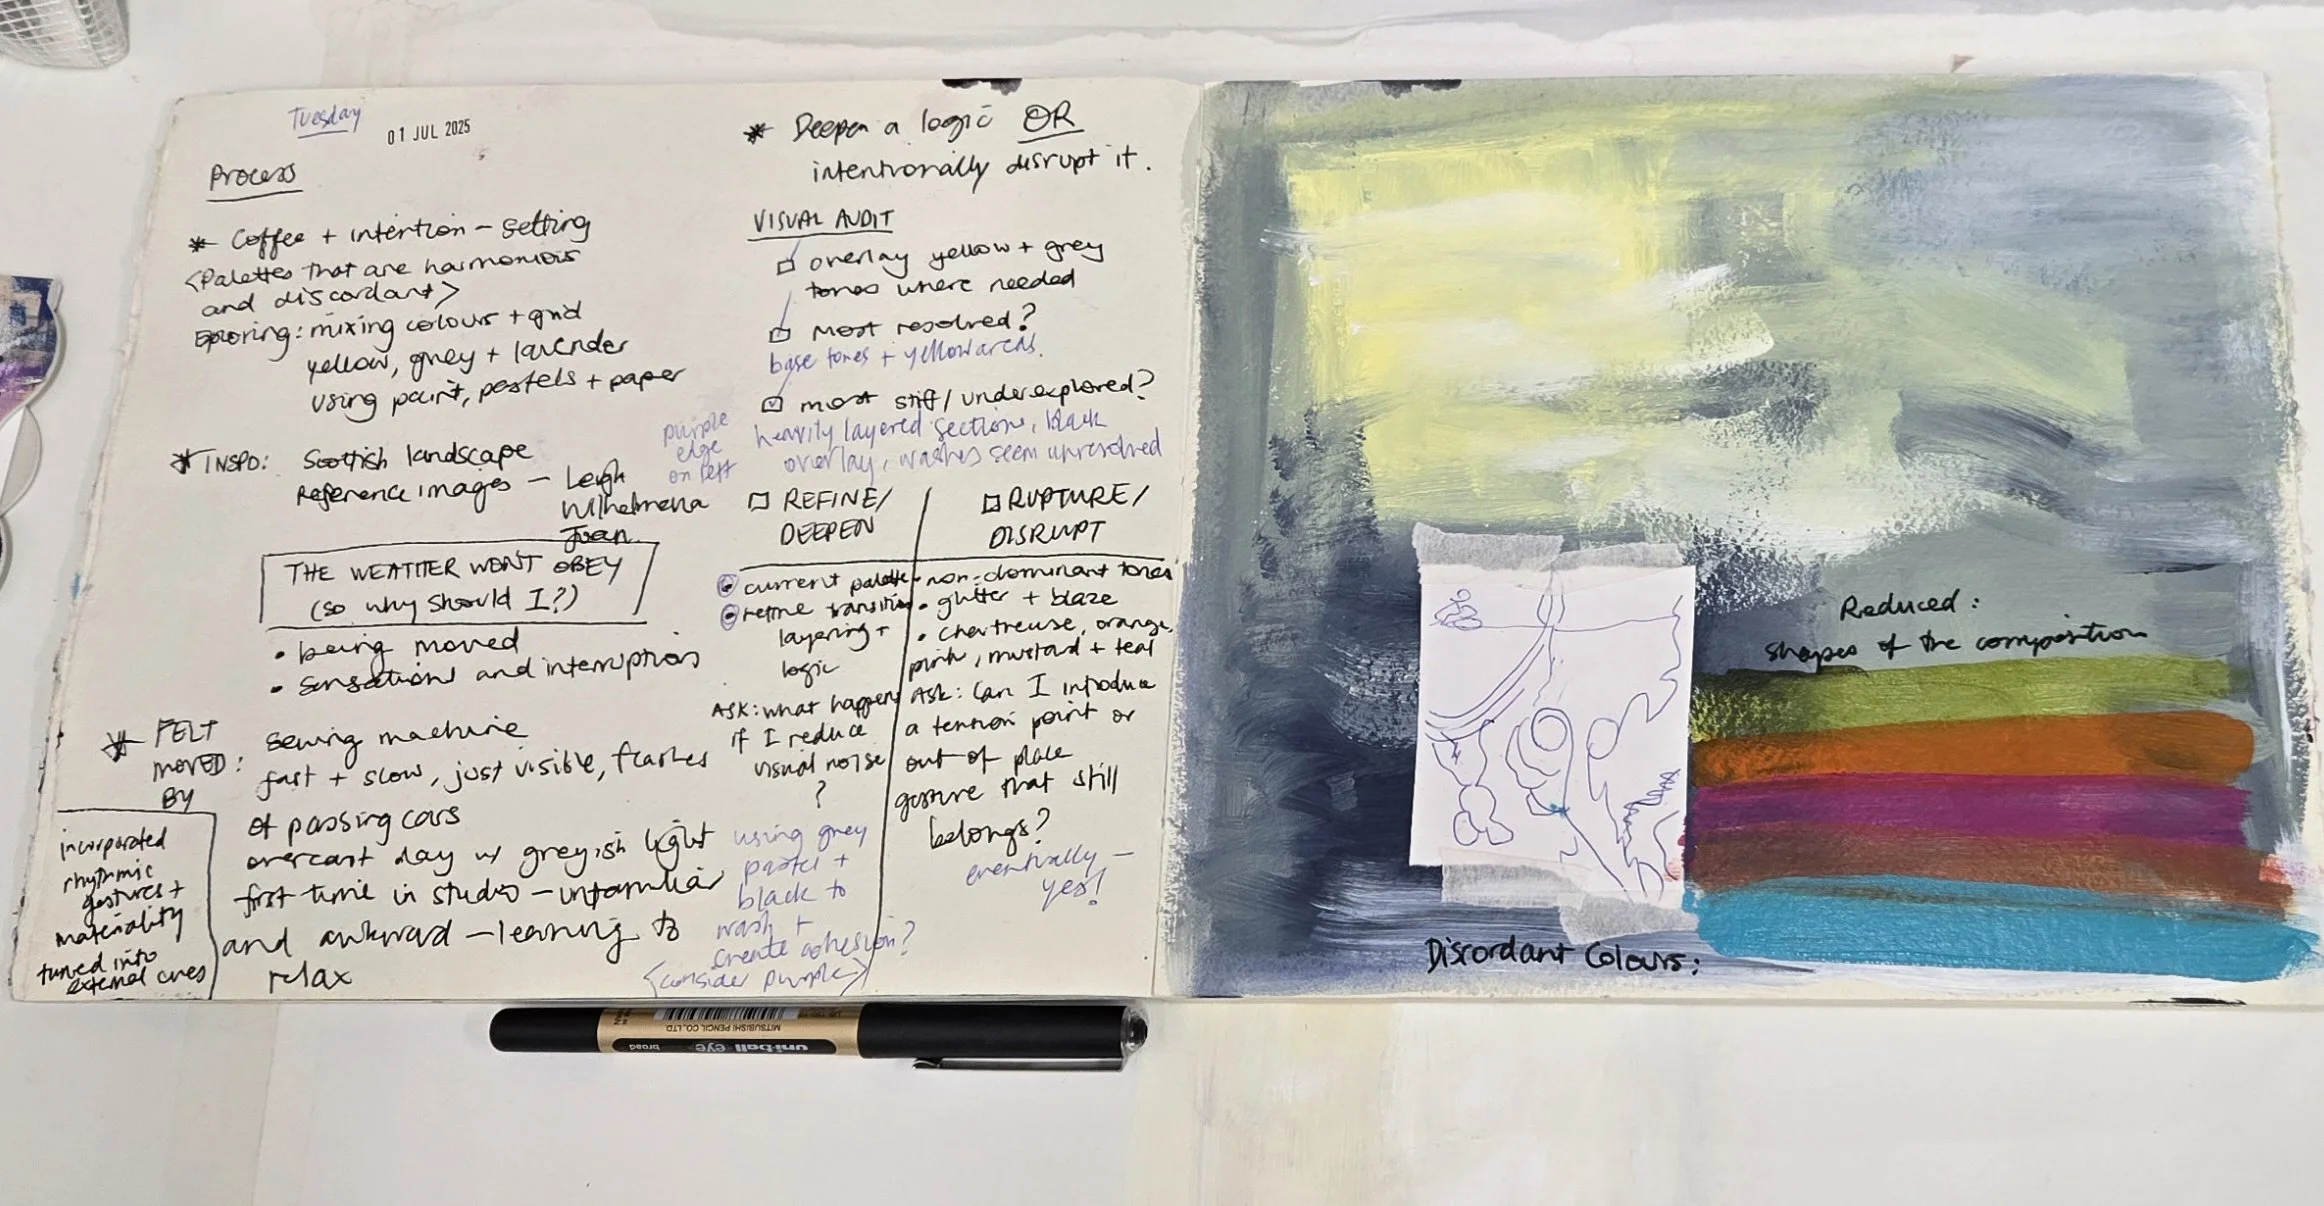 Tuesday
01 JUL 2025
Process
* Coffee + intention - setting
<Palettes that are harmonious
and discordant>
Exploring: mixing colours + grid
yellow, grey + lavender
using paint, pastels + paper
* INSPO: Scottish landscape
Reference images - Leigh
Wilhelmena
Joan
THE WEATHER WON'T OBEY
(so why should I?)
• being moved
• sensations and interruptions
* FELT
MOVED:
BY
sewing machine
fast + slow, just visible, flashes
of passing cars
overcast day w greyish light
first time in studio - unfamiliar
and awkward - learning to
relax
incorporated
rhythmic
gestures +
materiality
tuned into
external cues
* Deepen a logic OR
intentionally disrupt it.
VISUAL AUDIT
overlay yellow + grey
tones where needed
most resolved?
base tones + yellow areas.
most stiff/underexplored?
purple
edge
on left
heavily layered sections, black
overlay, washes seem unresolved
REFINE/
DEEPEN
• current palette
• refine transition
layering +
logic
ASK: what happens
if I reduce
visual noise
?
using grey
pastel +
black to
wash +
create cohesion?
<consider purple>
RUPTURE/
DISRUPT
• non-dominant tones
• glitter + blaze
• chartreuse, orange,
pink, mustard + teal
ASK: Can I introduce
a tension point or
out of place
gesture that still
belongs?
eventually -
yes!
Reduced:
shapes of the composition
Discordant Colours:
MITSUBISHI PENCIL CO., LTD.
uni-ball eye broad